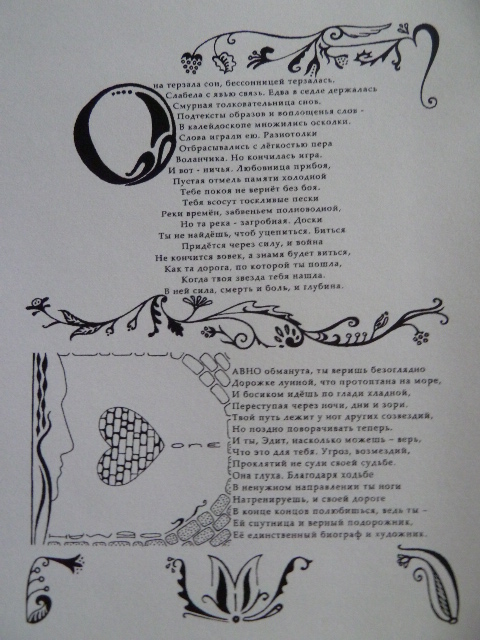 Она терзала сон, бессонницей терзалась.
Слабела с явью связь. Едва в седле держалась
Смурная толковательница снов.
Подтексты образов и воплощенья слов -
В калейдоскопе множились осколки.
Слова играли ею. Разнотолки
Отбрасывались с лёгкостью пера
Воланчика. Но кончилась игра.
И вот - ничья. Любовница прибоя,
Пустая отмель памяти холодной
Тебе покоя не вернёт без боя.
Тебя всосут тоскливые пески
Реки времён, забвеньем полноводной,
Но та река - загробная. Доски
Ты не найдёшь, чтоб уцепиться. Биться
Придётся через силу, и война
Не кончится вовек, а знамя будет виться,
Как та дорога, по которой ты пошла,
Когда твоя звезда тебя нашла.
В ней сила, смерть и боль, и глубина.
АВНО обманута, ты веришь безоглядно
Дорожке лунной, что протоптана на море,
И босиком идёшь по глади хладной,
Переступая через ночи, дни и зори.
Твой путь лежит у ног других созвездий,
Но поздно поворачивать теперь.
И ты, Эдит, насколько можешь – верь,
Что это для тебя. Угроз, возмездий,
Проклятий не сули своей судьбе.
Она глуха. Благодаря ходьбе
В ненужном направлении ты ноги
Натренируешь, и своей дороге
В конце концов полюбишься, ведь ты –
Ей спутница и верный подорожник,
Её единственный биограф и художник.